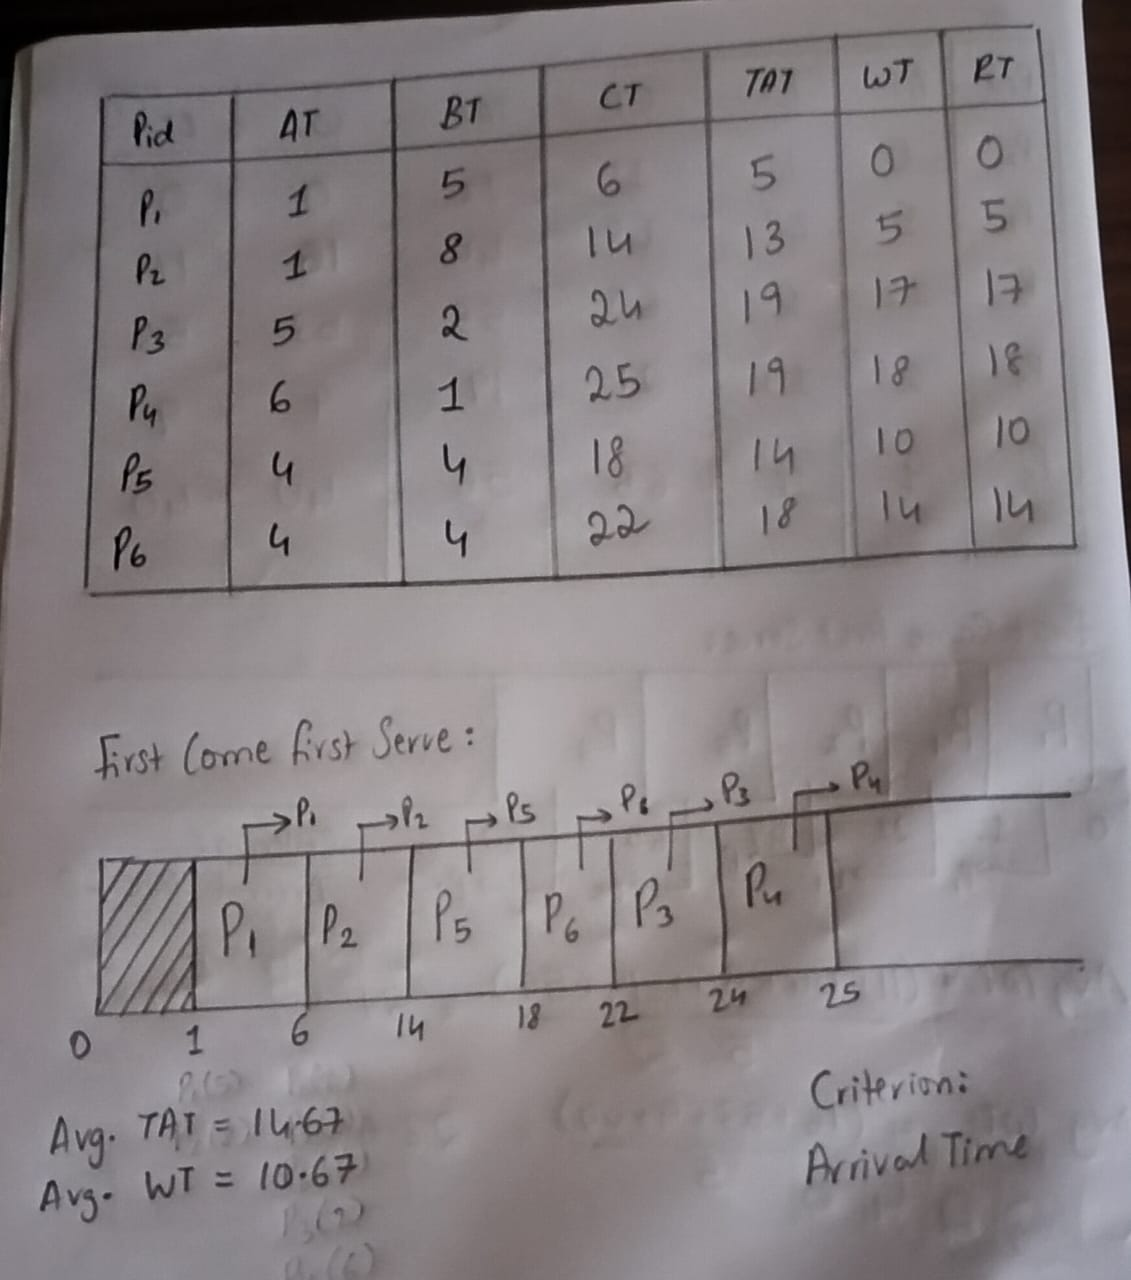 Pid AT BT CT TAT WT RT
P1 1 5 6 5 0 0
P2 1 8 14 13 5 5
P3 5 2 24 19 17 17
P4 6 1 25 19 18 18
P5 4 4 18 14 10 10
P6 4 4 22 18 14 14
First Come first Serve:
P1 P2 P5 P6 P3 P4
P1 P2 P5 P6 P3 P4
0 1 6 14 18 22 24 25
Avg. TAT = 14.67
Avg. WT = 10.67
Criterion:
Arrival Time